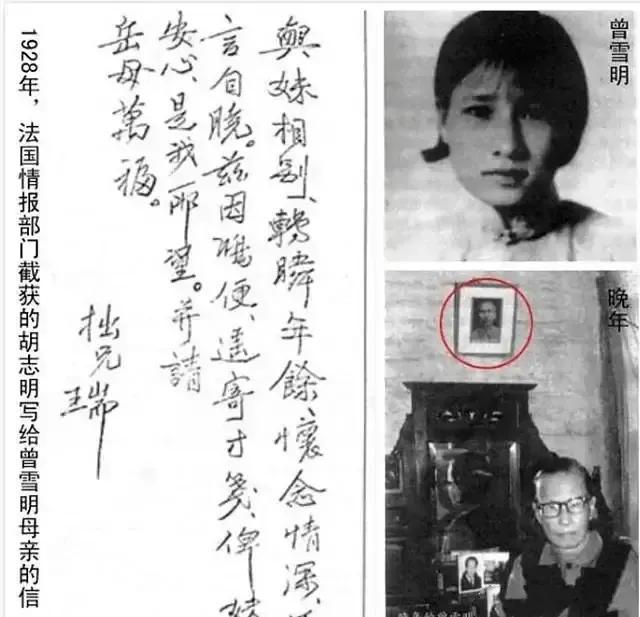 1928年，法国情报部门截获的胡志明写给曾雪明母亲的信
與妹相别、轉瞬年餘、懷念情深、
言自曉。茲因鴻便、遥寄寸箋、俾妹
安心、是我所望。并請
岳母萬福。
拙兄
瑞
曾雪明
晚年
晚年的曾雪明